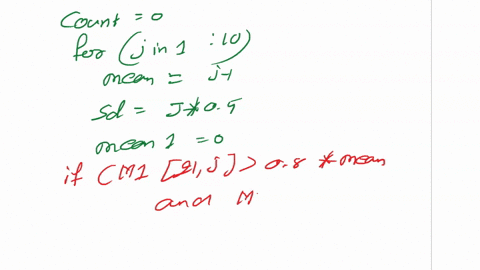 Count = 0
for (j in 1 : 10)
mean = j-1
sd = J*0.5
mean 1 = 0
if (M1 [21, j] > 0.8 * mean
and M